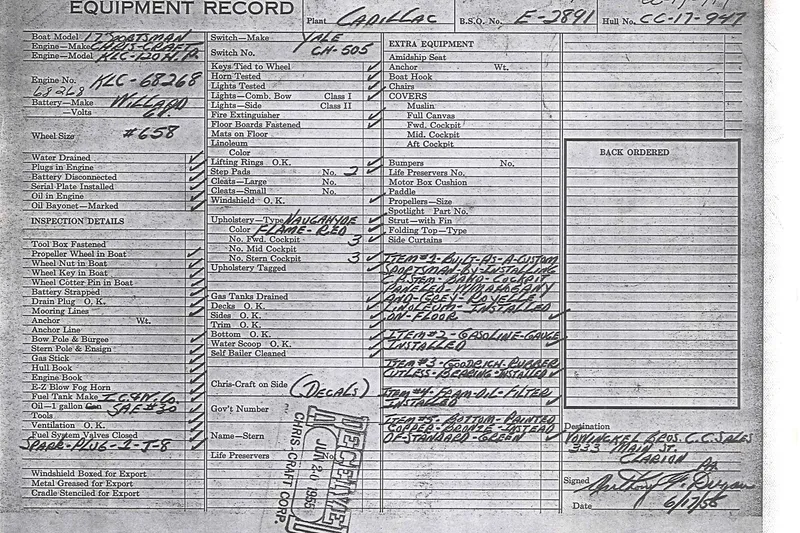 EQUIPMENT RECORD
Plant CADILLAC
B.S.O. No. E-2891
Hull No. CC-17-947
Boat Model 17 SPORTSMAN
Engine—Make CHRIS-CRAFT
Engine—Model KLC-120 H.P.
Engine No. KLC-68268
68268
Battery—Make WILLARD
—Volts 6V.
Wheel Size #658
Water Drained
Plugs in Engine
Battery Disconnected
Serial Plate Installed
Oil in Engine
Oil Bayonet—Marked
INSPECTION DETAILS
Tool Box Fastened
Propeller Wheel in Boat
Wheel Nut in Boat
Wheel Key in Boat
Wheel Cotter Pin in Boat
Battery Strapped
Drain Plug O. K.
Mooring Lines
Anchor Wt.
Anchor Line
Bow Pole & Burgee
Stern Pole & Ensign
Gas Stick
Hull Book
Engine Book
E-Z Blow Fog Horn
Fuel Tank Make
Oil—1 gallon Can SAE #30
Tools
Ventilation O. K.
Fuel System Valves Closed
SPARK-PLUG-1-J-8
Windshield Boxed for Export
Metal Greased for Export
Cradle Stenciled for Export
Switch—Make YALE
Switch No. CH-505
Keys Tied to Wheel
Horn Tested
Lights Tested
Lights—Comb. Bow Class I
Lights—Side Class II
Fire Extinguisher
Floor Boards Fastened
Mats on Floor
Linoleum
Color
Lifting Rings O. K.
Step Pads No. 2
Cleats—Large No.
Cleats—Small No.
Windshield O. K.
Upholstery—Type NAUGAHYDE
Color FLAME-RED
No. Fwd. Cockpit 3
No. Mid Cockpit
No. Stern Cockpit 3
Upholstery Tagged
Gas Tanks Drained
Decks O. K.
Sides O. K.
Trim O. K.
Bottom O. K.
Water Scoop O. K.
Self Bailer Cleaned
Chris-Craft on Side (DECALS)
Gov't Number
Name—Stern
Life Preservers No.
RECEIVED
JUN 20 1955
CHRIS CRAFT CORP.
EXTRA EQUIPMENT
Amidship Seat
Anchor Wt.
Boat Hook
Chairs
COVERS
Muslin
Full Canvas
Fwd. Cockpit
Mid. Cockpit
Aft Cockpit
Bumpers No.
Life Preservers No.
Motor Box Cushion
Paddle
Propellers—Size
Spotlight Part No.
Strut—with Fin
Folding Top—Type
Side Curtains
ITEM #1-BUILT-AS-A-CUSTOM
SPORTSMAN-BY-INSTALLING
COCKPIT
MAHOGANY
AND-GREY-ROYELLE
LINOLEUM-INSTALLED
ON-FLOOR
ITEM #2-GASOLINE-GAUGE
INSTALLED
ITEM #3-GOODRICH-RUBBER
CUTLESS-BEARING-INSTALLED
ITEM #4-FRAM-OIL-FILTER
INSTALLED
ITEM #5-BOTTOM-PAINTED
COPPER-BRONZE-INSTEAD
OF-STANDARD-GREEN
BACK ORDERED
Destination
VOWINCKEL BROS. C.C. SALES
333 MAIN ST.
CLARION PA
Signed
Date 6/17/55